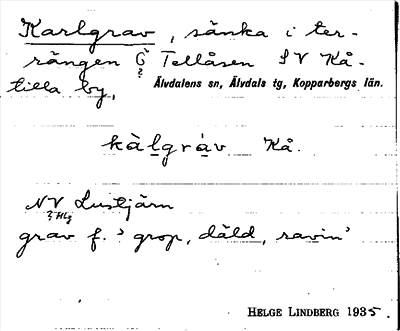 Karlgrav, sänka i ter-
rängen Ö Tellåsen SV Kå-
?
tilla by, Älvdalens sn, Älvdals tg, Kopparbergs län.
kàlgráv Kå.
NV Lustjärn
? Hlg
grav f. 'grop, däld, ravin'
HELGE LINDBERG 1935.